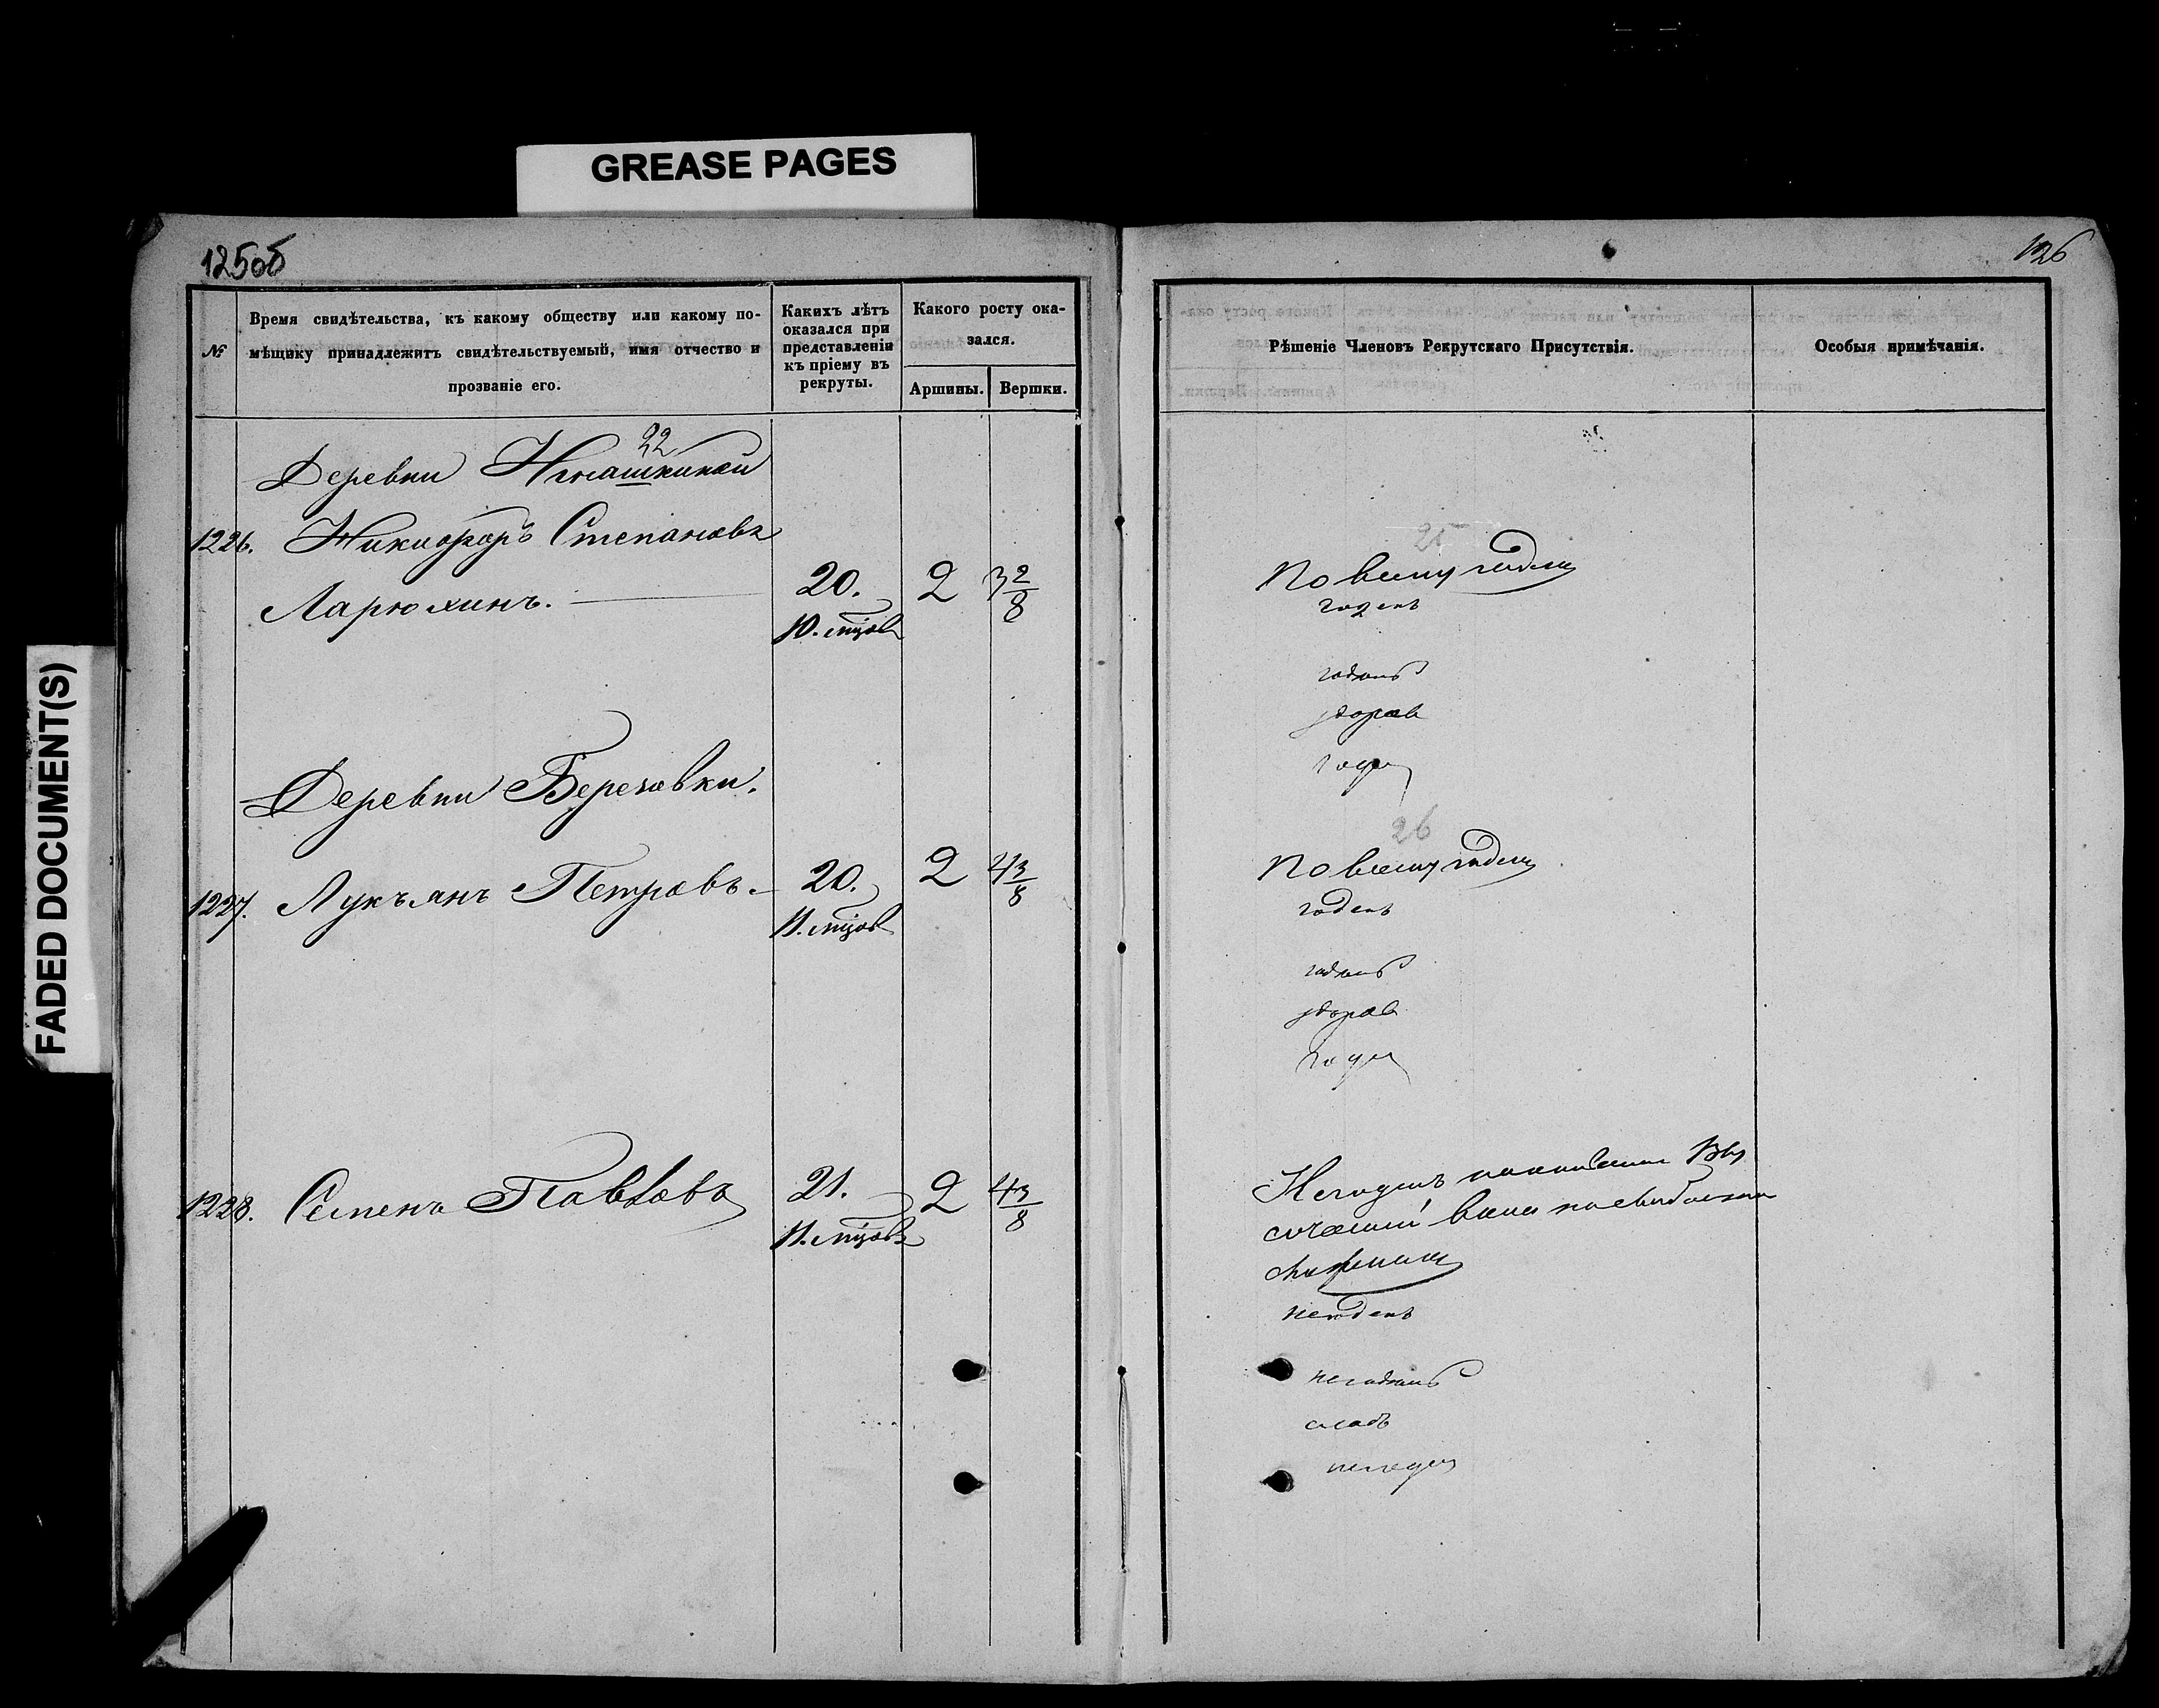 GREASE PAGES
FADED DOCUMENT(S)
125об
№
Время свидѣтельства, къ какому обществу или какому по-
мѣщику принадлежитъ свидѣтельствуемый, имя отчество и
прозваніе его.
Какихъ лѣтъ
оказался при
представленіи
къ пріему въ
рекруты.
Какого росту ока-
зался.
Аршины.
Вершки.
22
Деревни
1226. Никифоръ Степановъ
Ларюхинъ. 20. 2 3 2/8
10. мцовъ
Деревни Березовки.
1227. Лукъянъ Петровъ 20. 2 4 3/8
11. мцовъ
1228. Семенъ Павловъ 21. 2 4 3/8
11. мцовъ
126
Рѣшеніе Членовъ Рекрутскаго Присутствія.
Особыя примѣчанія.
25
По всему годенъ
годенъ
годенъ
здоров
годен
26
По всему годенъ
годенъ
годенъ
здоров
годен
Негоденъ
негоденъ
негоденъ
слабъ
негоден